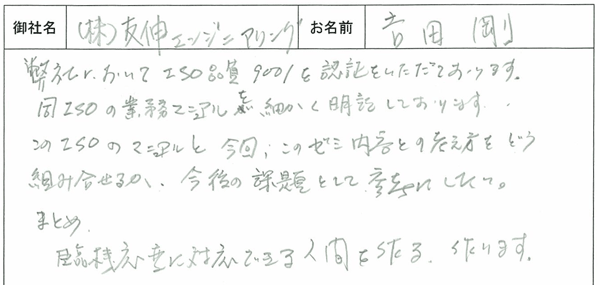 御社名 (株)友伸エンジニアリング お名前 吉田 剛
弊社において ISO品質 9001を認証をいただいております。
同ISOの業務マニアルを細かく明記しております。
このISOのマニアルと今回、このゼミ内容との考え方をどう
組み合せるか、今後の課題として参考にしたい。
まとめ
臨機応変に対応できる人間を作る、作ります。